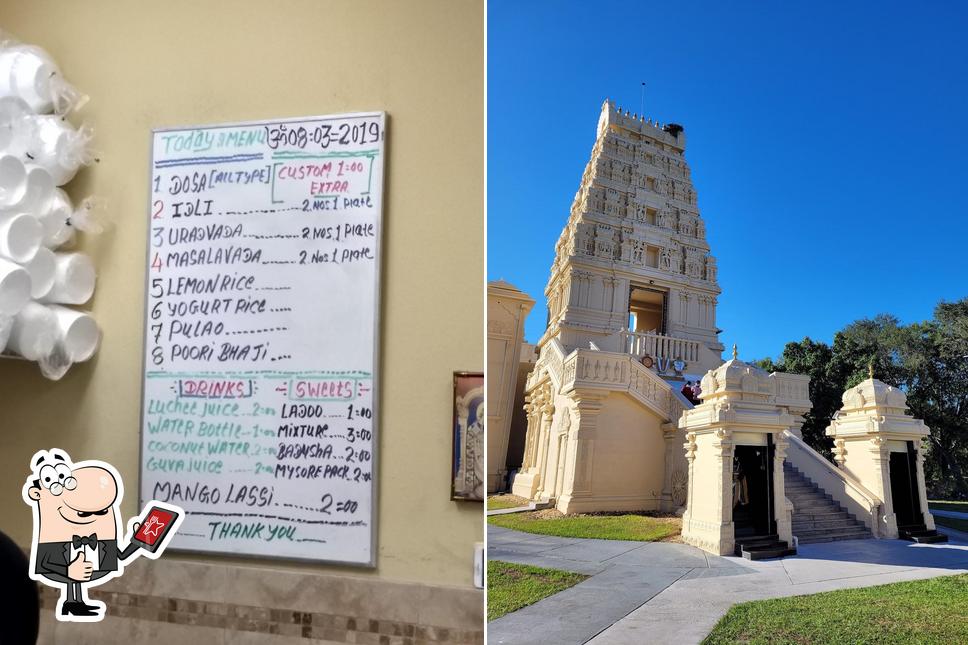 Today's MENU ॐ 08:03=2019
1 DOSA [ALL TYPE] CUSTOM 1=00
EXTRA
2 IDLI ............ 2.Nos.1 Plate
3 URADVADA ............ 2.Nos.1 Plate
4 MASALAVADA ........ 2.Nos.1 Plate
5 LEMON RICE ......
6 YOGURT Rice ......
7 PULAO ............
8 POORI BHAJI ....
DRINKS
Luchee Juice ... 2=00
WATER BOTTLe .. 1=00
COCONUT WATER . 2=00
Guva Juice ..... 2=00
SWEETS
LADOO ..... 1=00
MIXTURE ... 3=00
BADUSHA ... 2=00
MYSORE PACK. 2=00
MANGO LASSI ..... 2=00
THANK YOU